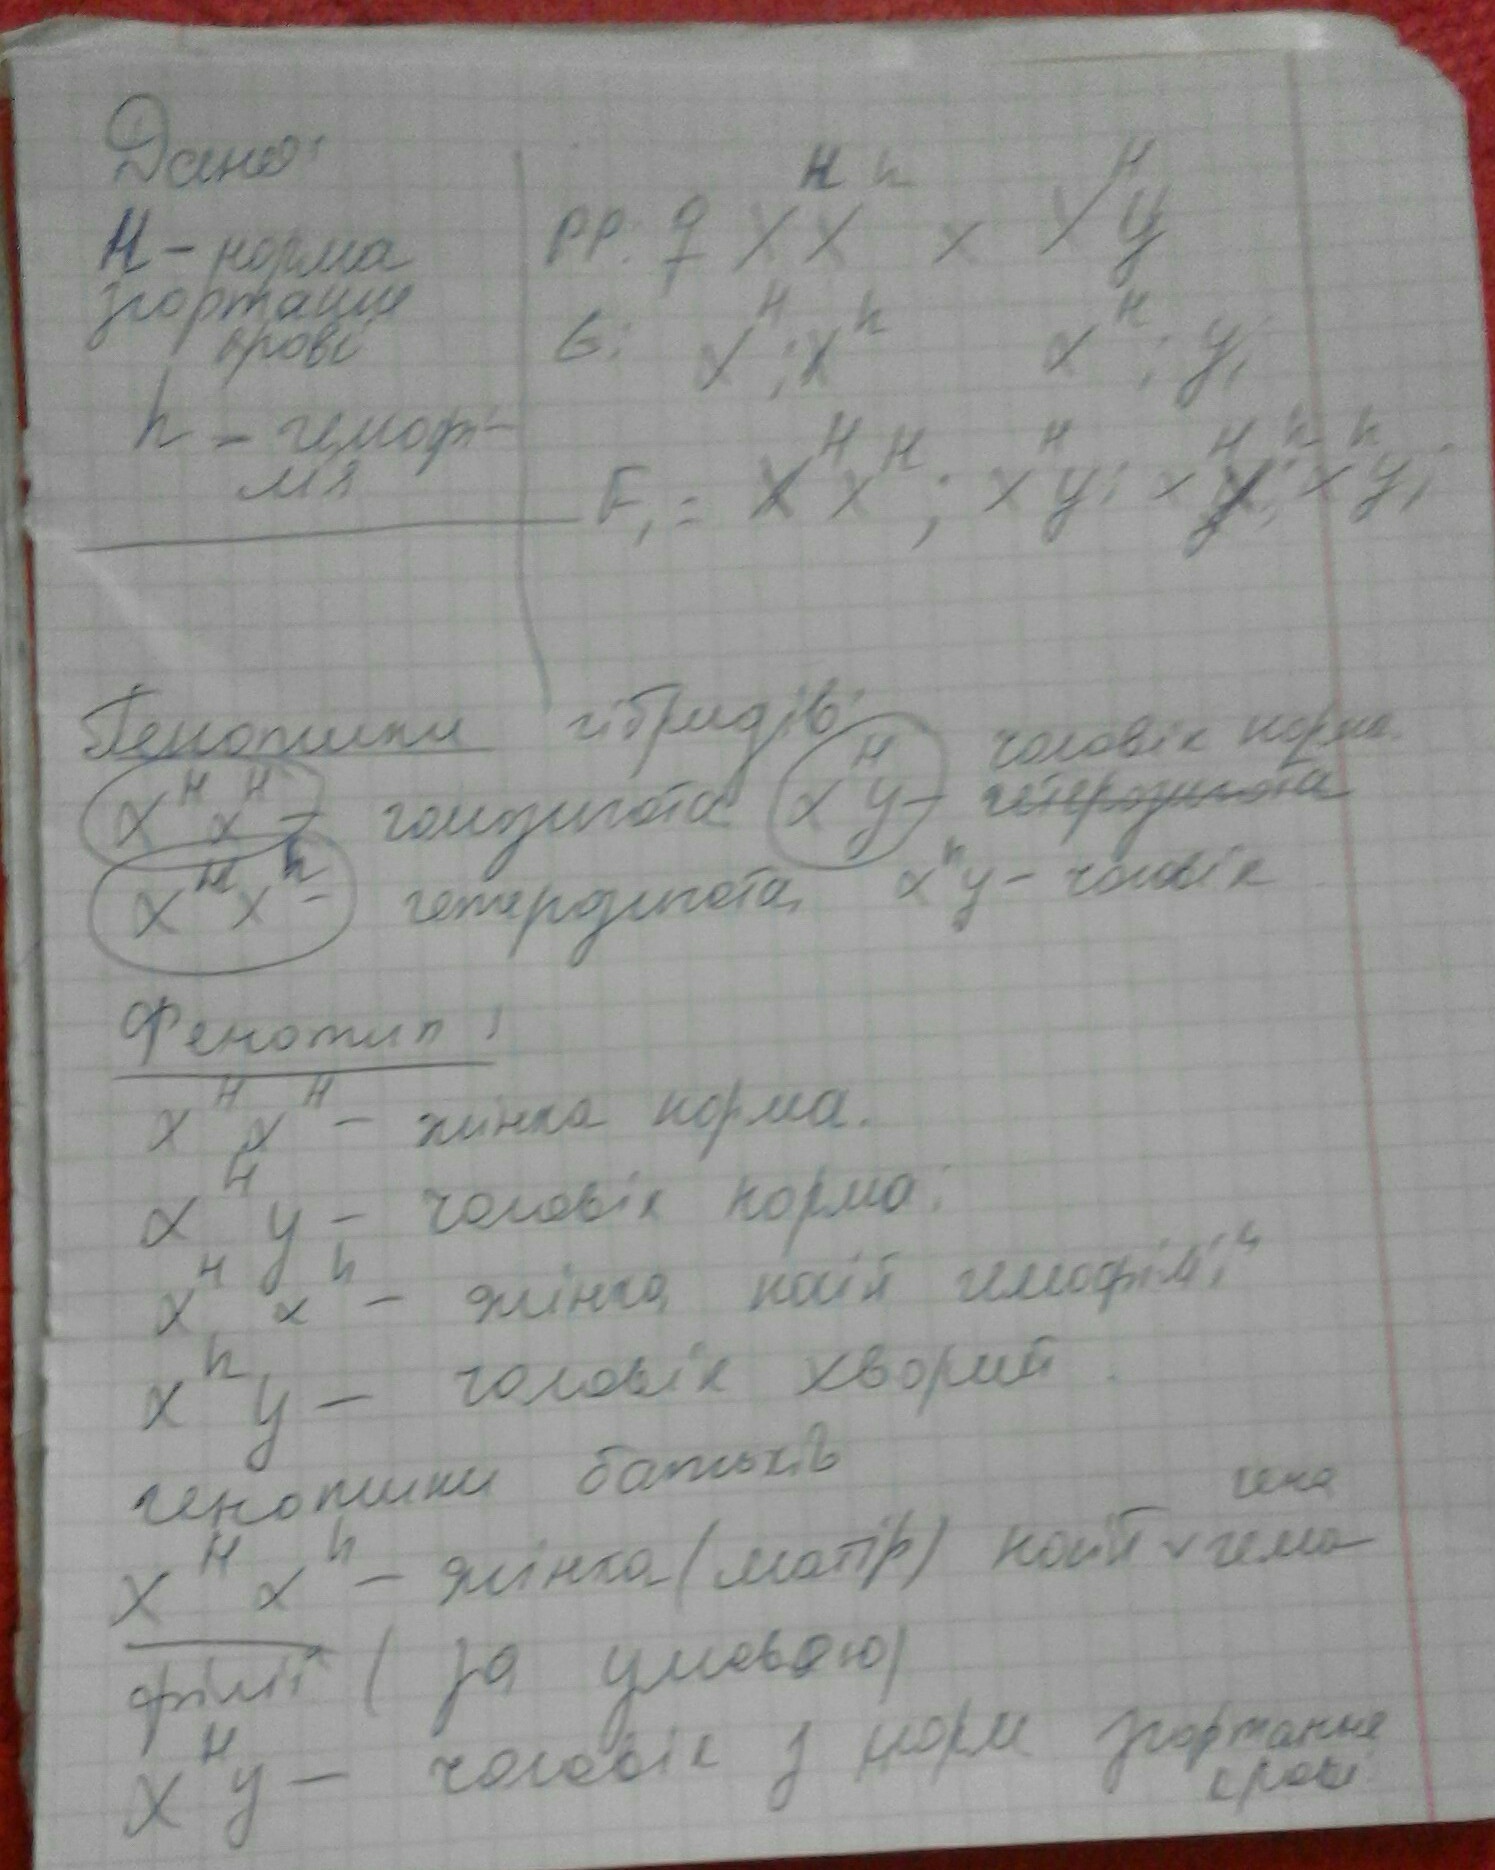 Дано:
H – норма
згортання
крові
h – гемофі-
лія
PP: ♀ X^H X^h x X^H y
G: x^H; x^h x^H; y;
F₁ = X^H x^H; x^H y; x^H x^h; x^h y;
Генотипи гібридів:
x^H x^H – гомозигота x^H y – чоловік норма.
гетерозигота
x^H x^h – гетерозигота, x^h y – чоловік
Фенотип:
x^H x^H – жінка норма.
x^H y – чоловік норма;
x^H x^h – жінка носій гемофілії
x^h y – чоловік хворий.
генотипи батьків
гена
x^H x^h – жінка (матір) носій v гемо
філії (за умовою)
x^H y – чоловік з норм згортання
крові